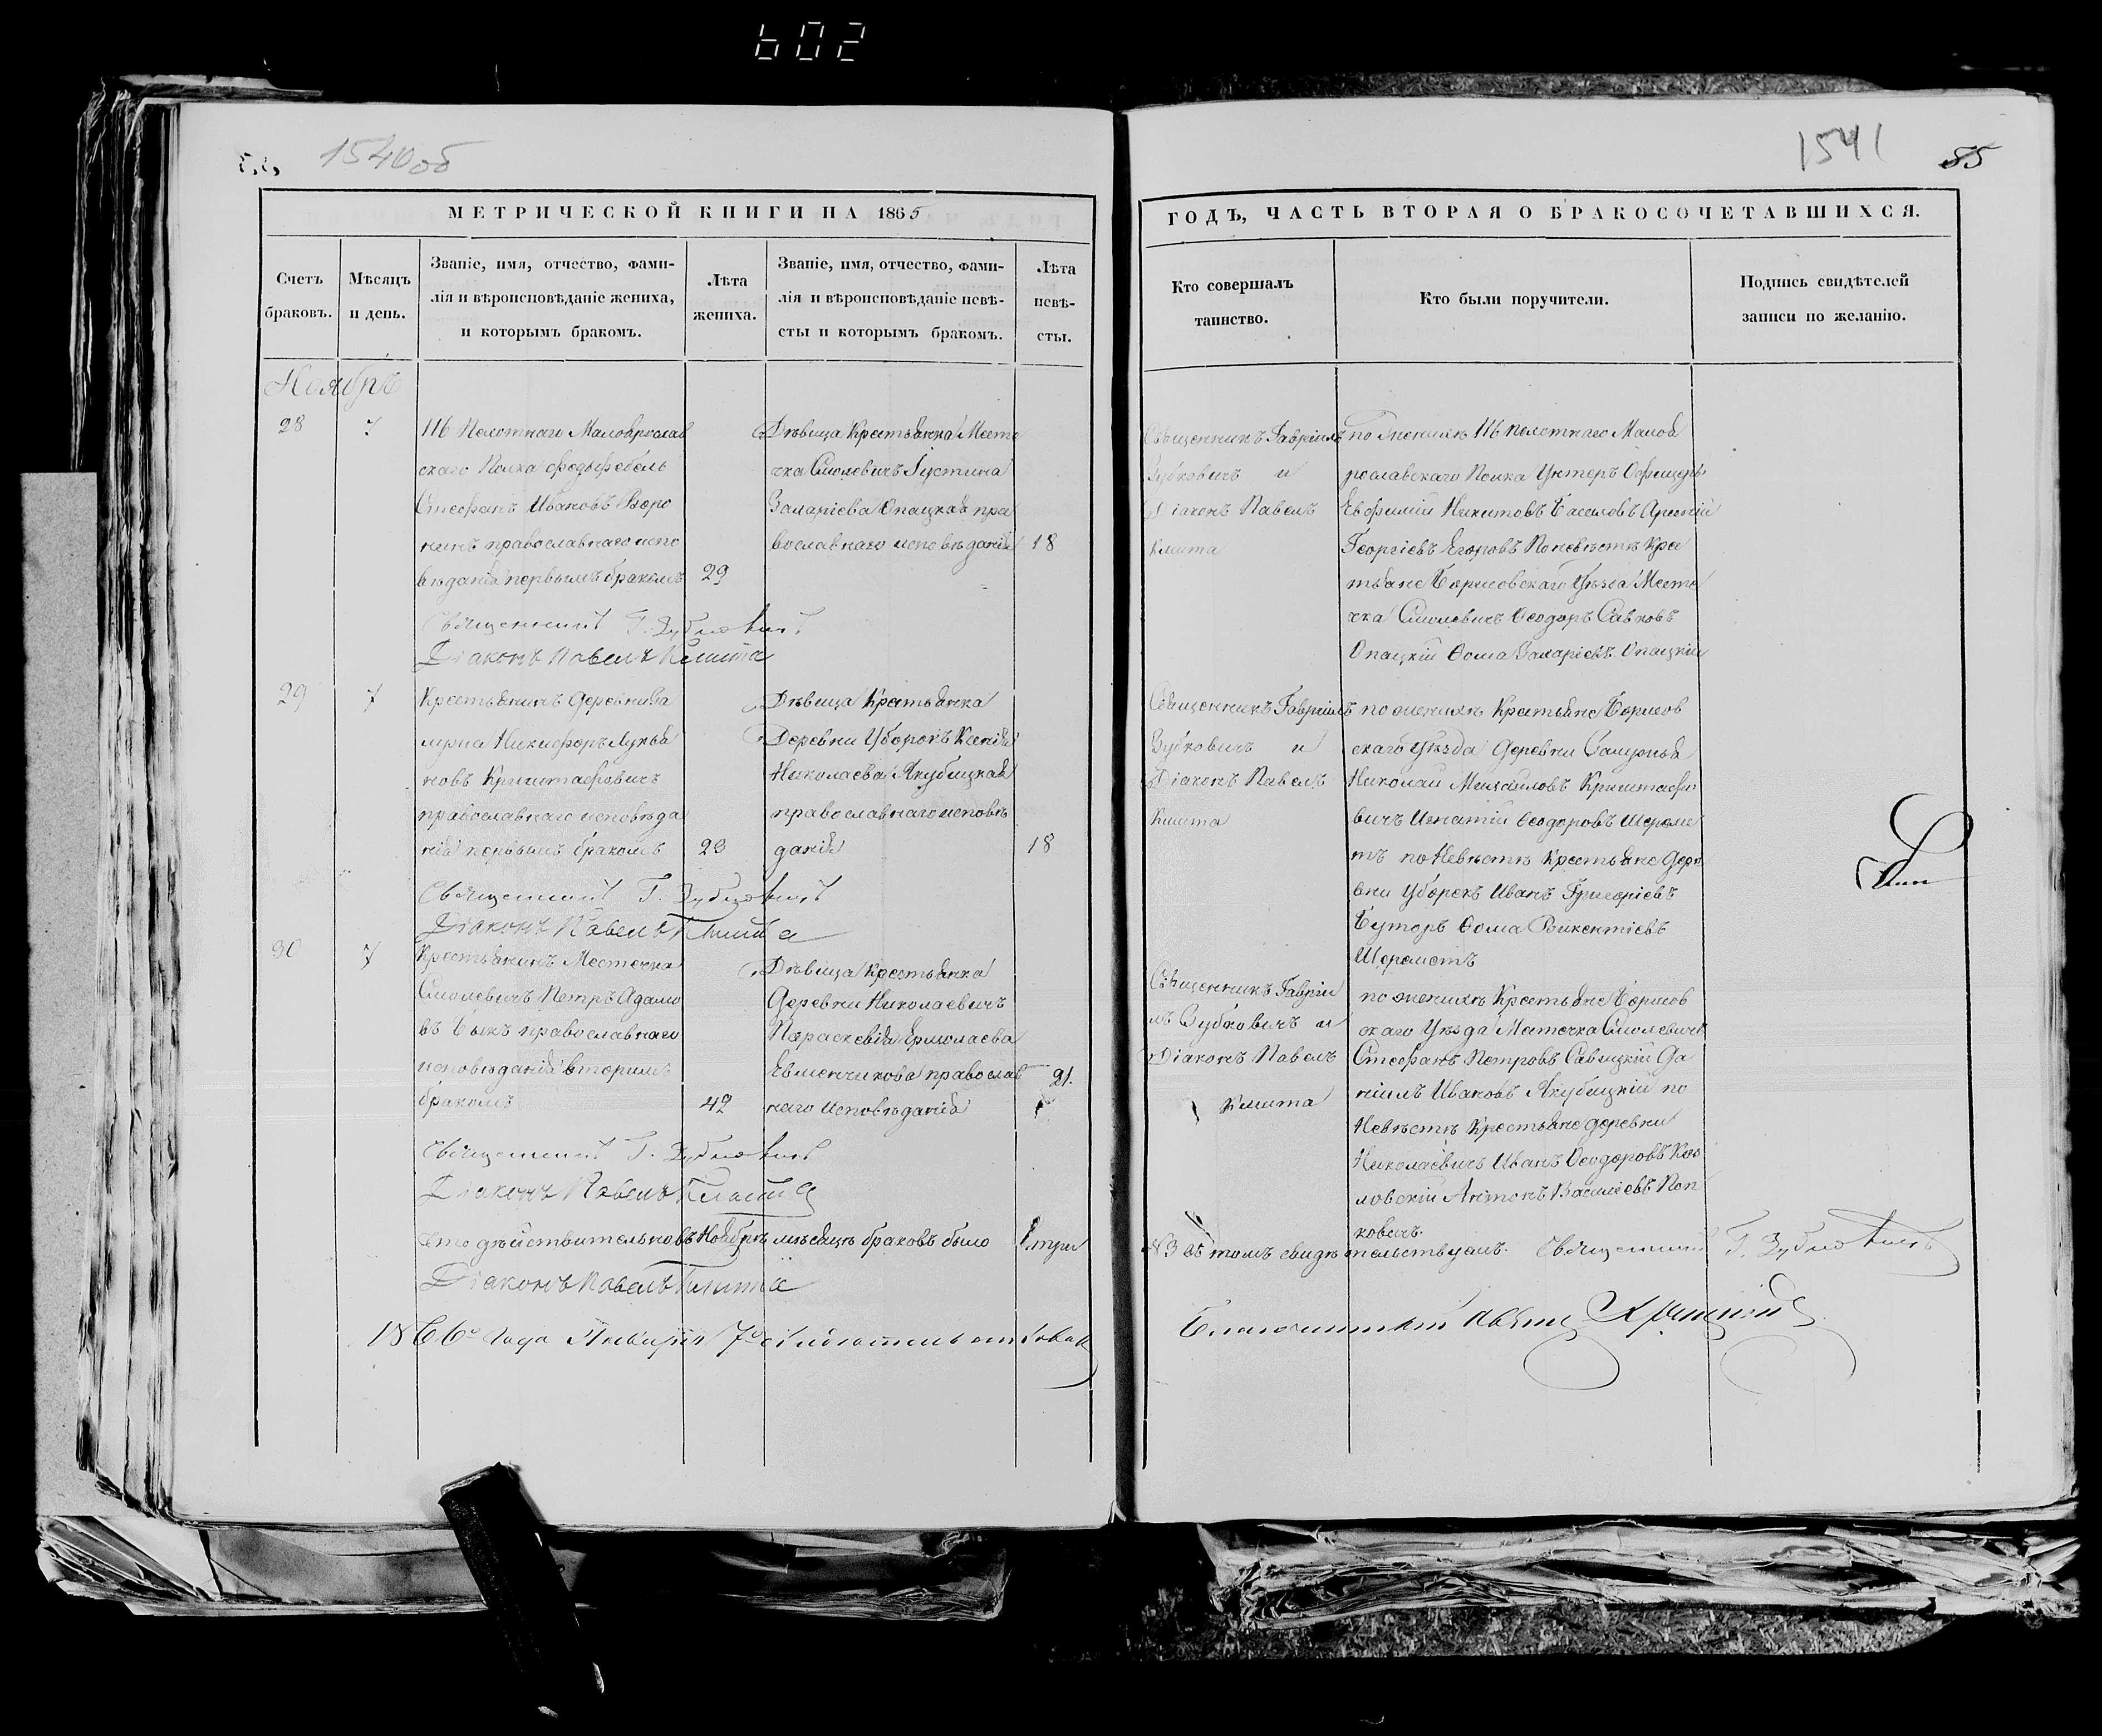 602
1540об
1541
55
МЕТРИЧЕСКОЙ КНИГИ НА 1865
ГОДЪ, ЧАСТЬ ВТОРАЯ О БРАКОСОЧЕТАВШИХСЯ.
Счетъ браковъ.
Мѣсяцъ и день.
Званіе, имя, отчество, фами-
лія и вѣроисповѣданіе жениха,
и которымъ бракомъ.
Лѣта жениха.
Званіе, имя, отчество, фами-
лія и вѣроисповѣданіе невѣ-
сты и которымъ бракомъ.
Лѣта невѣ-
сты.
Кто совершалъ
таинство.
Кто были поручители.
Подпись свидѣтелей
записи по желанію.
Ноябрь
28
7
116 Пехотнаго Малоярослав
скаго Полка Федьфебель
Стефанъ Ивановъ Воро
нинъ православнаго испо
вѣданія первымъ бракомъ
29
Священникъ Г. Зубковичъ
Діаконъ Павелъ Кмита
Дѣвица Крестьянка Месте
чка Смолевичъ Іустина
Захаріева Опацкая пра
вославнаго исповѣданія
18
Священникъ Гавріилъ
Зубковичъ и
Діаконъ Павелъ
Кмита
по женихѣ 116 пехотнаго Малоя
рославскаго Полка Унтеръ Офицеры
Евфимій Никитовъ
Георгіевъ Егоровъ По невѣстѣ Крес
тьяне Борисовскаго Уѣзда Месте
чка Смолевичъ Ѳеодоръ Савковъ
Опацкій Ѳома Захаріевъ Опацкій
29
7
Крестьянинъ деревни
Никифоръ Лукья
новъ Криштафовичъ
православнаго исповѣда
нія первымъ бракомъ
23
Священникъ Г. Зубковичъ
Діаконъ Павелъ Кмита
Дѣвица Крестьянка
Деревни Уборокъ Ксенія
Николаева Якубицкая
православнаго исповѣ
данія
18
Священникъ Гавріилъ
Зубковичъ и
Діаконъ Павелъ
Кмита
по женихѣ Крестьяне Борисов
скаго Уѣзда Деревни
Николай Михайловъ Криштафо
вичъ Игнатій Ѳеодоровъ Шереме
тъ по Невѣстѣ Крестьяне Дере
вни Уборокъ Иванъ Григоріевъ
Буторъ Ѳома Викентіевъ
Шереметъ
30
7
Крестьянинъ Местечка
Смолевичъ Петръ Адамо
въ Быкъ православнаго
исповѣданія вторымъ
бракомъ
42
Священникъ Г. Зубковичъ
Діаконъ Павелъ Кмита
Дѣвица Крестьянка
Деревни Николаевичъ
Параскевія Ермолаева
Евменчикова православ
наго исповѣданія
21.
Священникъ Гавріи
лъ Зубковичъ и
Діаконъ Павелъ
Кмита
по женихѣ Крестьяне Борисов
скаго Уѣзда Местечка Смолевичъ
Стефанъ Петровъ Савицкій Да
ніилъ Ивановъ Якубицкій по
Невѣстѣ Крестьяне деревни
Николаевичъ Иванъ Ѳеодоровъ Коз
ловскій Антонъ Василіевъ Поп
ковичъ.
Что дѣйствительно въ Ноябрѣ мѣсяцѣ браковъ было три
№3 въ томъ свидѣтельствуемъ. Священникъ Г. Зубковичъ
Діаконъ Павелъ Кмита
1866 года Января 7 свидѣтельствовалъ
Благочинный